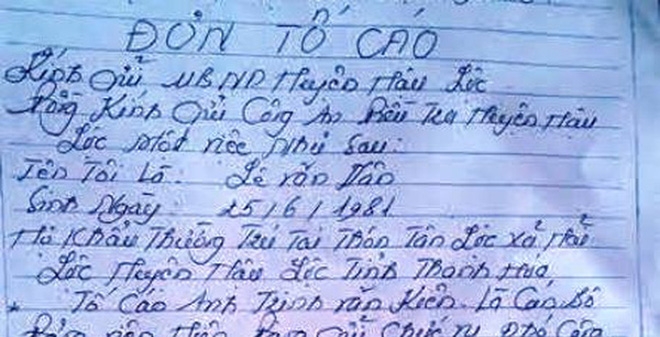 ĐƠN TỐ CÁO
Kính Gửi UBND Huyện Hậu Lộc
Đồng Kính Gửi Công An Điều Tra Huyện Hậu
Lộc một việc Như Sau:
Tên Tôi Là: Lê văn
Sinh Ngày: 25/6/1981
Hộ Khẩu Thường Trú Tại Thôn Tân Lộc xã Hải
Lộc Huyện Hậu Lộc Tỉnh Thanh Hoá
Tố Cáo Anh Trịnh văn Kiên. Là Cán Bộ